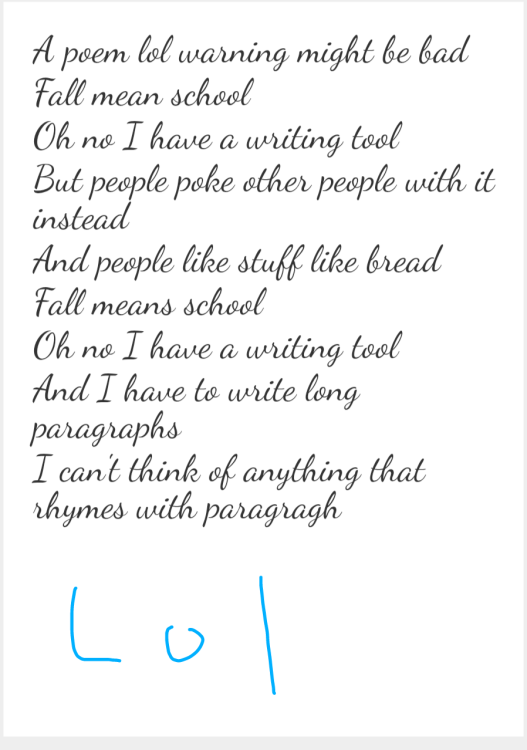 A poem lol warning might be bad
Fall mean school
Oh no I have a writing tool
But people poke other people with it
instead
And people like stuff like bread
Fall means school
Oh no I have a writing tool
And I have to write long
paragraphs
I can't think of anything that
rhymes with paragragh
Lol